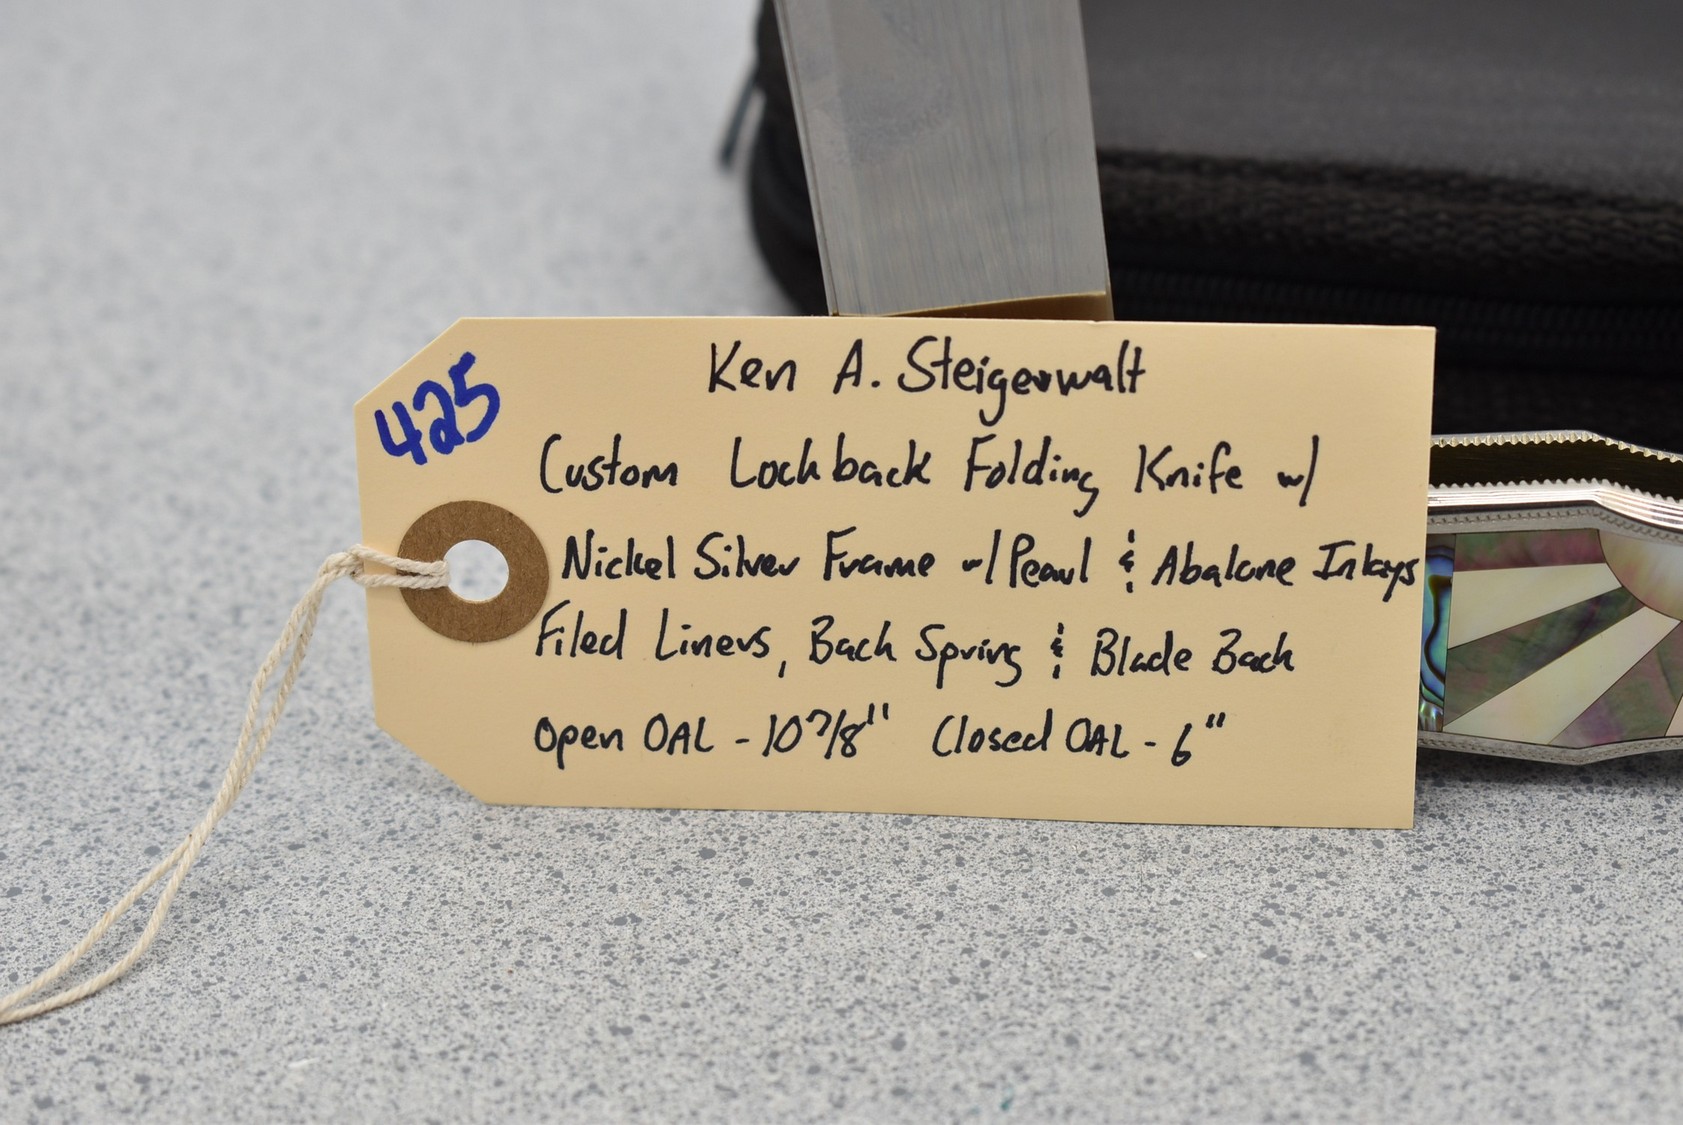 425
Ken A. Steigerwalt
Custom Lockback Folding Knife w/
Nickel Silver Frame w/ Pearl & Abalone Inlays
Filed Liners, Back Spring & Blade Back
Open OAL - 10 7/8" Closed OAL - 6"